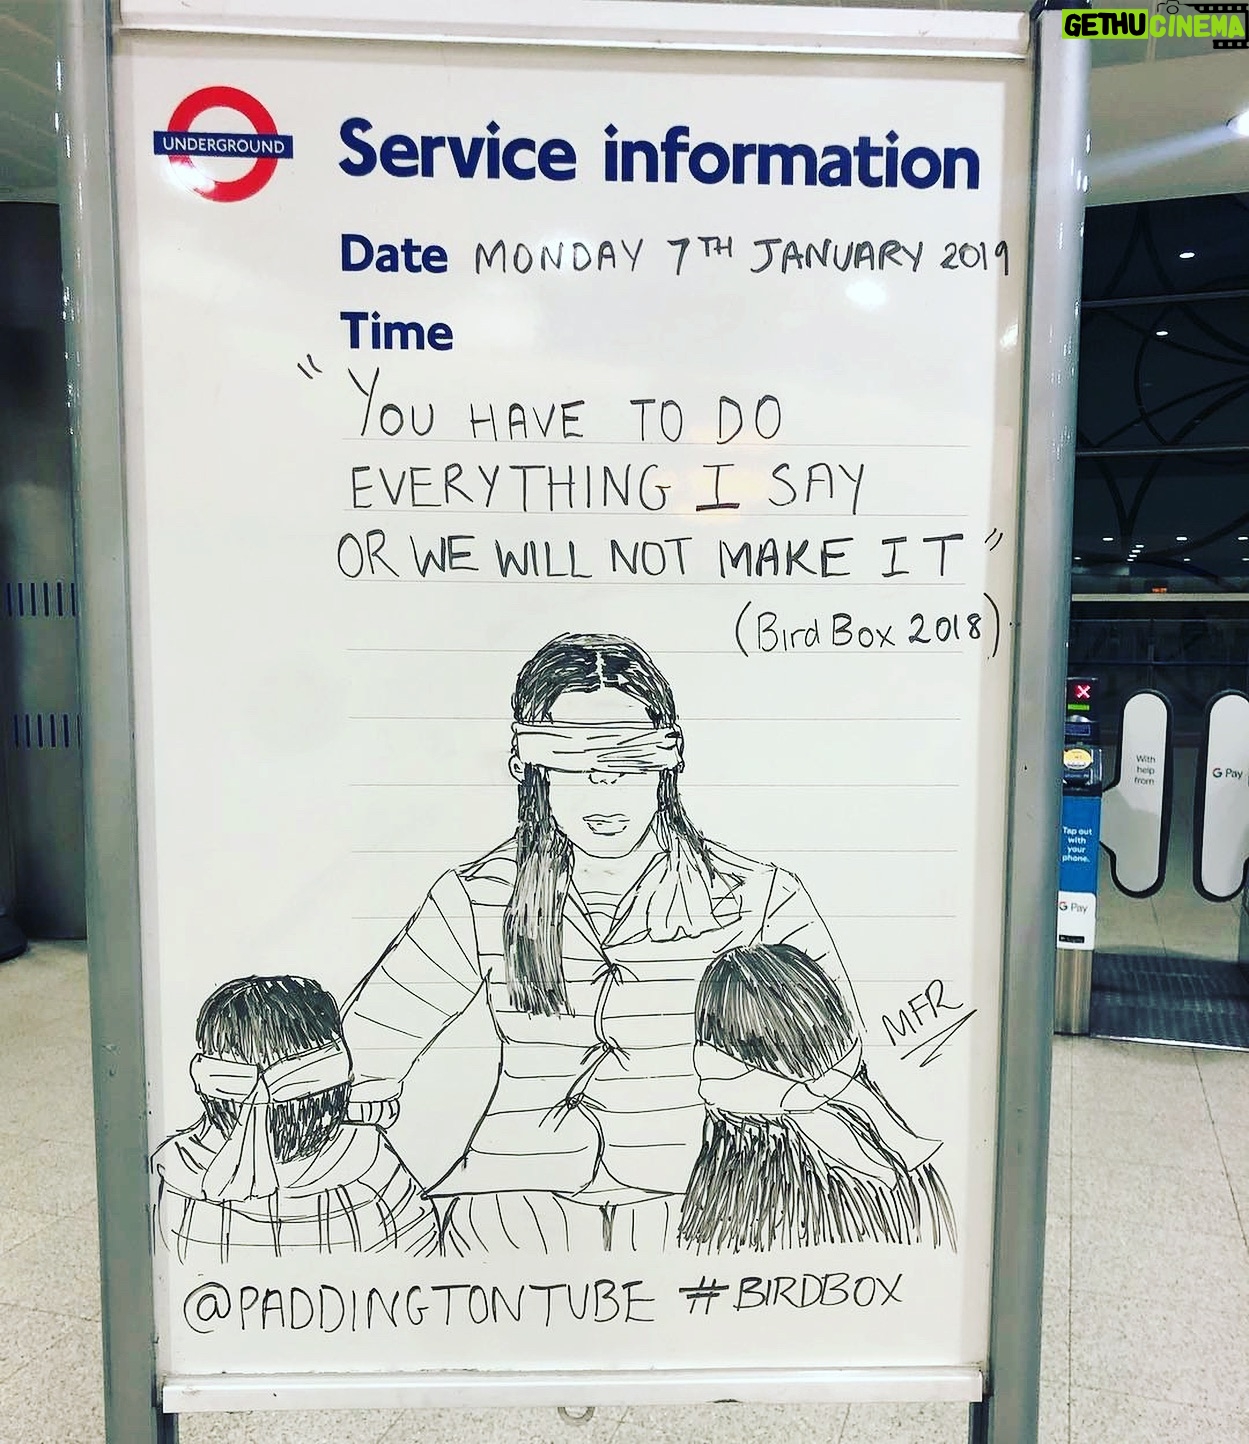 GETHUCINEMA
UNDERGROUND
Service information
Date MONDAY 7TH JANUARY 2019
Time
"YOU HAVE TO DO
EVERYTHING I SAY
OR WE WILL NOT MAKE IT"
(Bird Box 2018)
MFR
@PADDINGTONTUBE #BIRDBOX
With
help
from
G Pay
Tap out
with
your
phone.
G Pay